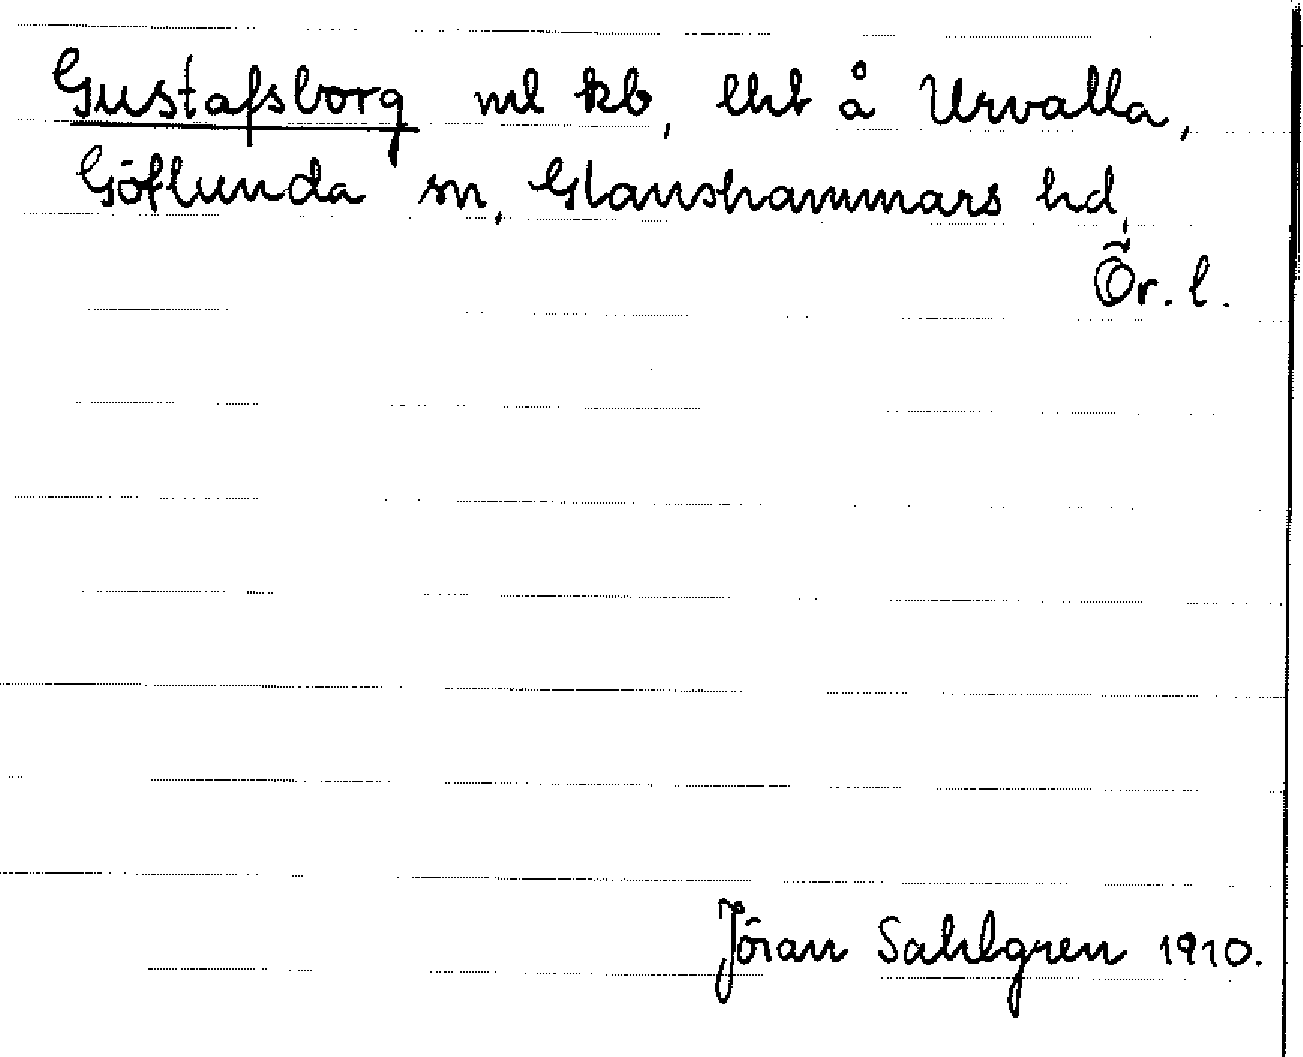 Gustafsborg ml kb, lht å Urvalla,
Götlunda sn, Glanshammars hd,
Ör. l.
Jöran Sahlgren 1910.